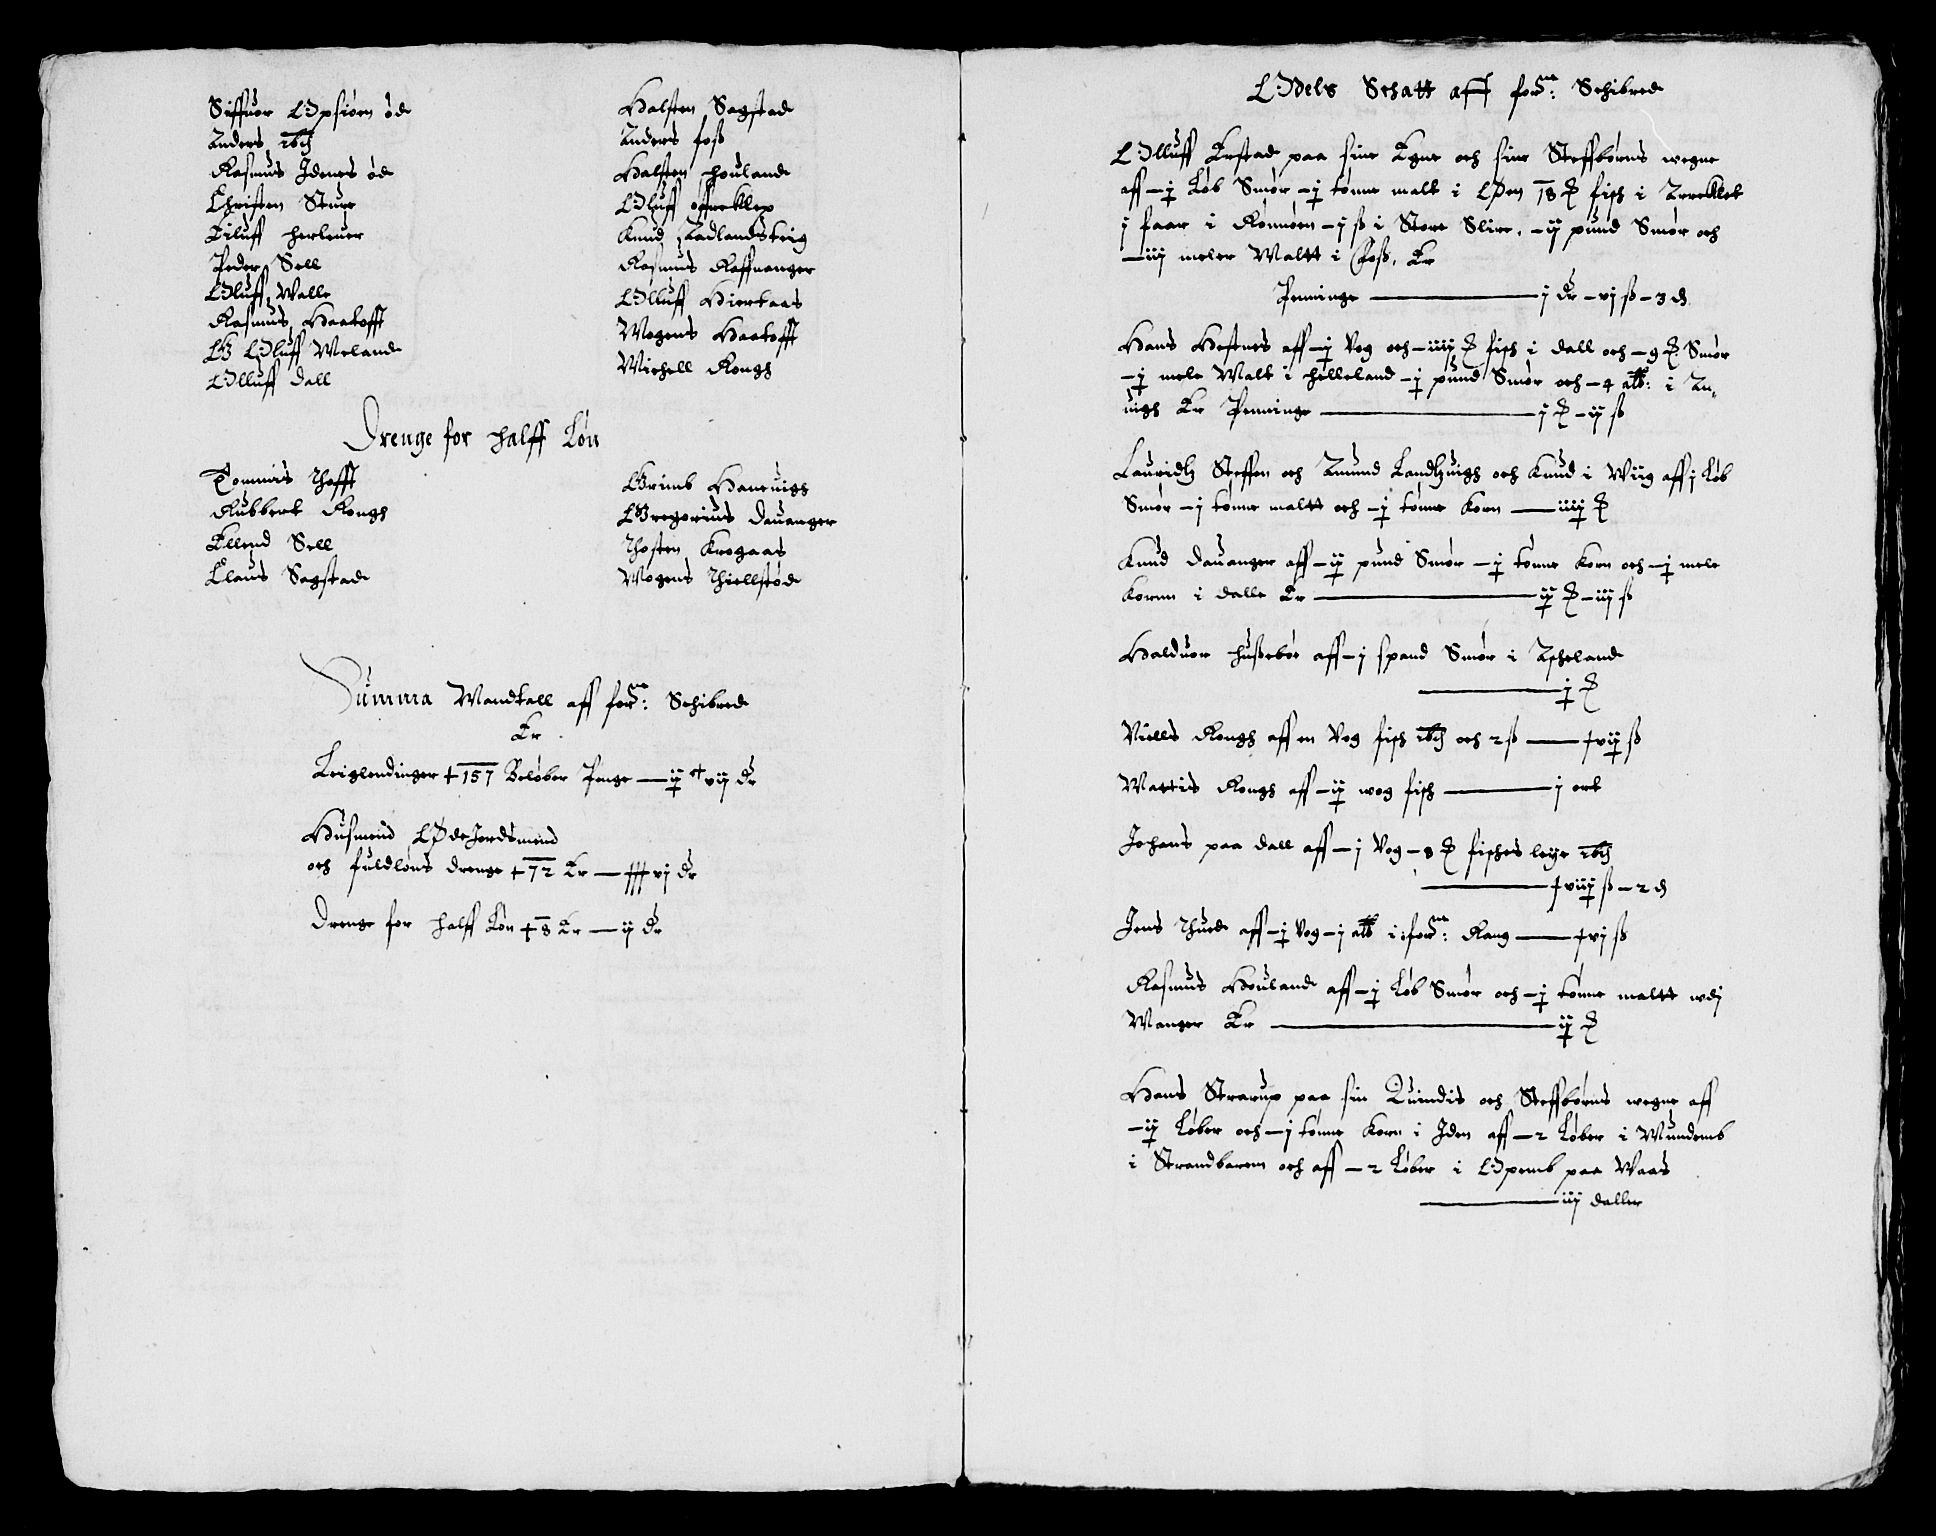 Siffuor Opsiøen øde
Anders ibid
Rasmus Idenes øde
Christen Sture
Eiluff Herleuer
Peder Sell
Oluff Walle
Rasmus Haatofft
Oluff Meland
Olluff Dall
Halsten Sagstad
Anders Foss
Halsten Houland
Oluff
Knud Aadlandsteig
Rasmus Raffnanger
Olluff Hiertaas
Mogens Haatofft
Michell Rongs
Drenge for halff Løn
Tommis Thofft
Rubbert Rongs
Ellend Sell
Claus Sagstad
Grimb Haneuigs
Gregorius Dauanger
Thosten Krogaas
Mogens Thiellstøde
Summa Mandtall aff forne: Schibrede
Er
Leiglendinger 157 Beløber Penge
Husmend Ødejordsmend
och fuldløns drenge 72 Er vj dr
Drenge for halff Løn 8 Er ij dr
Odels Schatt aff forne: Schibrede
Olluff Erstad paa sine Egne och sine Steffbørns wegne
aff j Løb Smør j tønne malt i Øen 18 fisch i
j faar i Rønnøen j ß i Store Slire, ij pund Smør och
iij meler Maltt i Foss, Er
Penninge j dr vj ß 3 d
Hans Hestnes aff j Vog och iiij fisch i Dall och 9 Smør
j mele Malt i Helleland j pund Smør och 4 alb: i An¬
uigs Er Penninge j ij ß
Lauridtz Steffen och Amund Landtzuigs och Knud i Wiig aff j Løb
Smør j tønne maltt och j tønne Korn iiij
Knud Dauanger aff ij pund Smør j tønne Korn och j mele
Kornn i Dalle Er ij iij ß
Halduor Hussebøe aff j spand Smør i Ascheland
j
Niells Rongs aff en Vog fisch ibid och 2 ß vij ß
Mattis Rongs aff ij wog fisch j ort
Johans paa Dall aff j Vog 8 fisches leye ibid
viij ß 2 d
Jens Thuede aff j Vog j alb i forne: Rong vj ß
Rasmus Houland aff j Løb Smør och j tønne maltt wdj
Manger Er ij
Hans Strarup paa sin Quindis och Steffbørns wegne aff
ij Løber och j tønne Korn i Iden aff 2 Løber i Mundemb
i Strandbarem och aff 2 Løber i Opemb paa Waas
iij daller